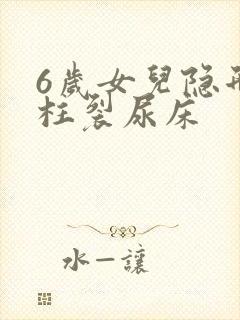 6歲女兒隐形
枉裂尿床
水一讓